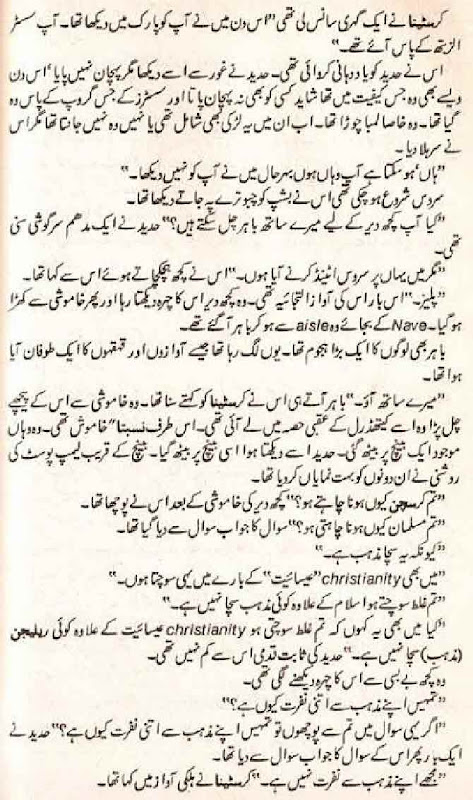 کرسٹینا نے ایک گہری سانس لی تھی "اس دن میں نے آپ کو پارک میں دیکھا تھا۔ آپ سسٹر
الزتھ کے پاس آئے تھے۔"
اس نے حدید کو یاد دہانی کروائی تھی۔ حدید نے غور سے اسے دیکھا مگر پہچان نہیں پایا 'اس دن
ویسے بھی وہ جس کیفیت میں تھا شاید کسی کو بھی نہ پہچان پاتا اور سسٹرز کے جس گروپ کے پاس وہ
گیا تھا۔ وہ خاصا لمبا چوڑا تھا۔ اب ان میں یہ لڑکی بھی شامل تھی یا نہیں وہ نہیں جانتا تھا مگر اس
نے سر ہلا دیا۔
"ہاں' ہو سکتا ہے آپ وہاں ہوں بہرحال میں نے آپ کو نہیں دیکھا۔"
سروس شروع ہو چکی تھی اس نے بشپ کو چبوترے پہ جاتے دیکھا تھا۔
"کیا آپ کچھ دیر کے لیے میرے ساتھ باہر چل سکتے ہیں؟" حدید نے ایک مدھم سرگوشی سنی
تھی۔
"مگر میں یہاں پر سروس اٹینڈ کرنے آیا ہوں۔" اس نے کچھ ہچکچاتے ہوئے اس سے کہا تھا۔
"پلیز۔" اس بار اس کی آواز التجائیہ تھی۔ وہ کچھ دیر اس کا چہرہ دیکھتا رہا اور پھر خاموشی سے کھڑا
ہو گیا۔ Nave کے بجائے وہ aisle سے ہو کر باہر آ گئے تھے۔
باہر بھی لوگوں کا ایک بڑا ہجوم تھا۔ یوں لگ رہا تھا جیسے آوازوں اور قہقہوں کا ایک طوفان آیا
ہوا تھا۔
"میرے ساتھ آؤ۔" باہر آتے ہی اس نے کرسٹینا کو کہتے سنا تھا۔ وہ خاموشی سے اس کے پیچھے
چل پڑا وہ اسے کیتھڈرل کے عقبی حصہ میں لے آئی تھی۔ اس طرف نسبتاً" خاموشی تھی۔ وہ وہاں
موجود ایک بینچ پر بیٹھ گئی۔ حدید اسے دیکھتا ہوا اسی بینچ پر بیٹھ گیا۔ بینچ کے قریب لیمپ پوسٹ کی
روشنی نے ان دونوں کو بہت نمایاں کر دیا تھا۔
"تم کرسچن کیوں ہونا چاہتے ہو؟" کچھ دیر کی خاموشی کے بعد اس نے پوچھا تھا۔
"تم مسلمان کیوں ہونا چاہتی ہو؟" سوال کا جواب سوال سے دیا گیا تھا۔
"کیونکہ یہ سچا مذہب ہے۔"
"میں بھی christianity "عیسائیت" کے بارے میں یہی سوچتا ہوں۔"
"تم غلط سوچتے ہو' اسلام کے علاوہ کوئی مذہب سچا نہیں ہے۔"
"کیا میں بھی یہ کہوں کہ تم غلط سوچتی ہو christianity عیسائیت کے علاوہ کوئی ریلیجن
(مذہب) سچا نہیں ہے۔" حدید کی ثابت قدمی اس سے کم نہیں تھی۔
وہ کچھ بے بسی سے اس کا چہرہ دیکھنے لگی تھی۔
"تمہیں اپنے مذہب سے اتنی نفرت کیوں ہے؟"
"اگر یہی سوال میں تم سے پوچھوں تو تمہیں اپنے مذہب سے اتنی نفرت کیوں ہے؟" حدید نے
ایک بار پھر اس کے سوال کا جواب سوال سے دیا تھا۔
"مجھے اپنے مذہب سے نفرت نہیں ہے۔" کرسٹینا نے ہلکی آواز میں کہا تھا۔